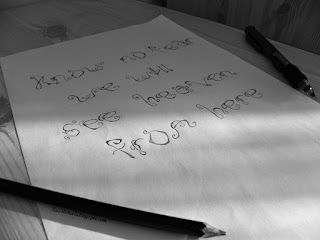 Know no fear
we will
see heaven
from here